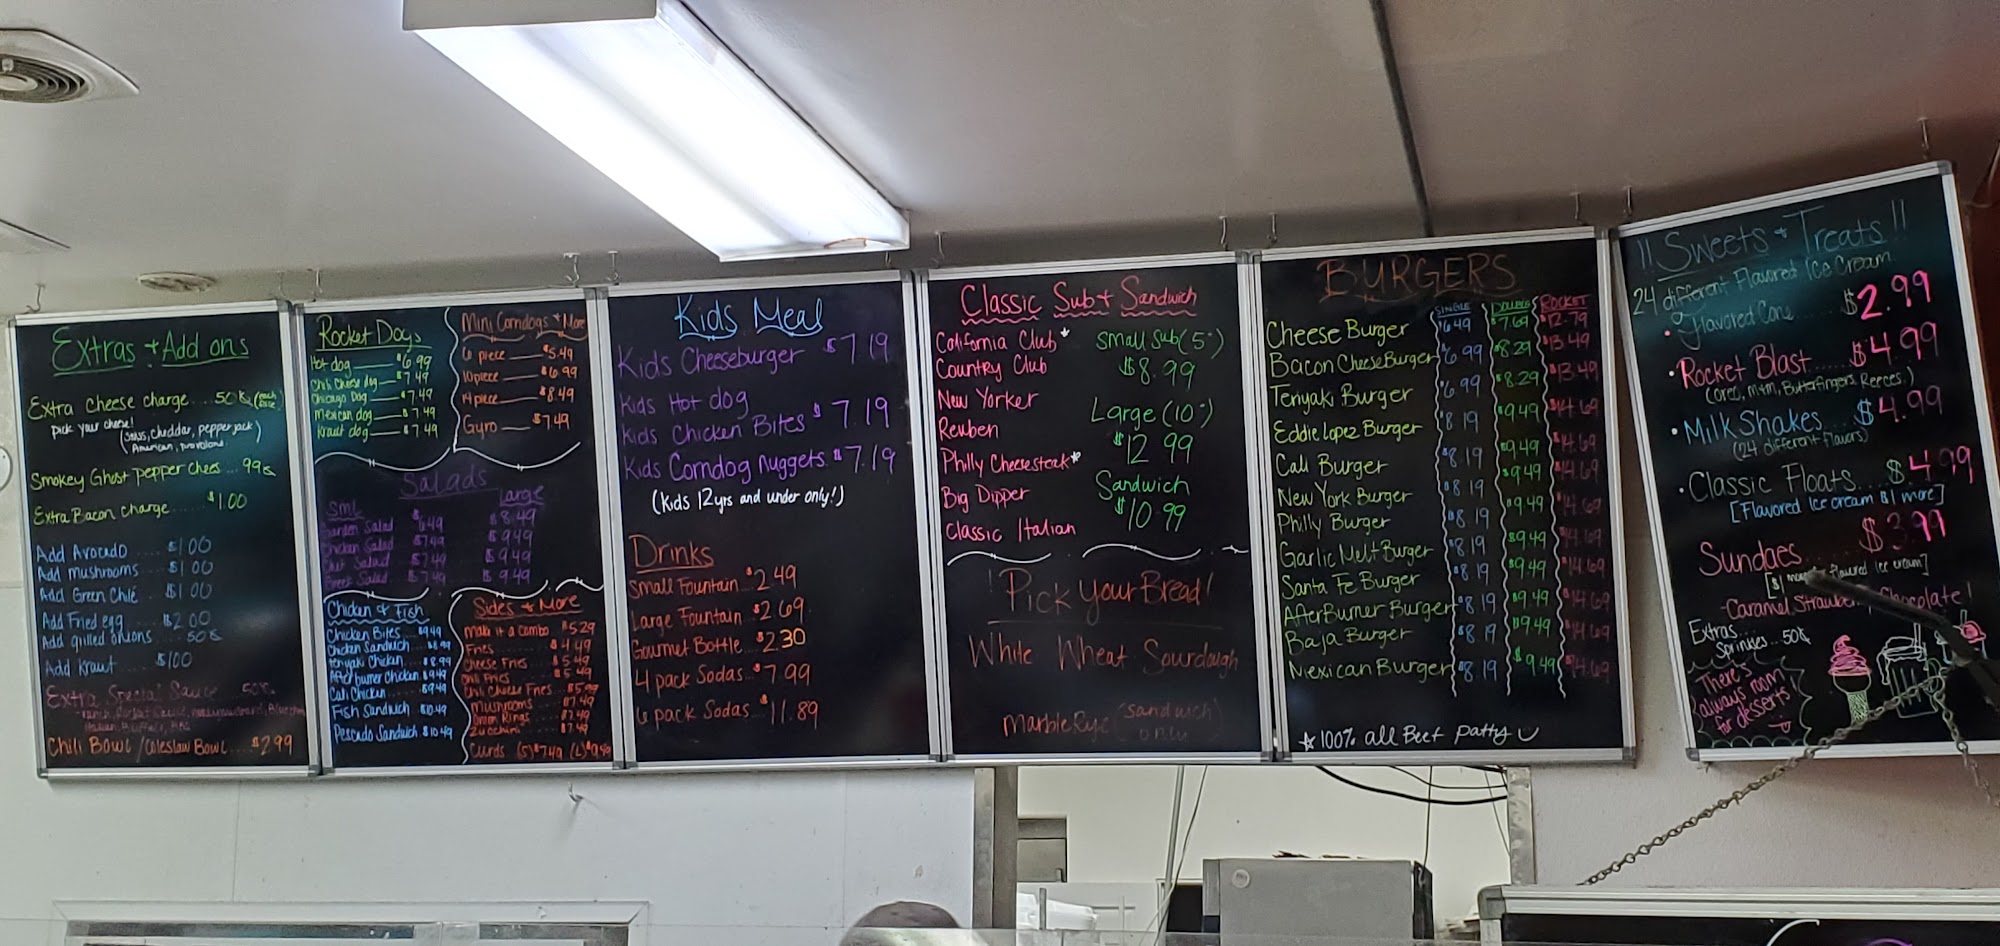 Extras + Add ons
Extra cheese charge...50¢ (each slice)
pick your cheese!
(swiss, cheddar, pepper jack)
American, provolone
Smokey Ghost pepper chees...99¢
Extra Bacon charge......$1.00
Add Avocado....$1.00
Add mushrooms....$1.00
Add Green Chile....$1.00
Add Fried egg......$2.00
Add grilled onions....50¢
Add Kraut....$1.00
Extra Special Sauce...50¢
Chili Bowl/Coleslaw Bowl....$2.99
Rocket Dogs
Hot dog $6.99
Chili Cheese dog $7.49
Chicago Dog $7.49
Mexican dog $7.49
Kraut dog $7.49
Mini Corndogs + More
6 piece $5.49
10 piece $6.99
14 piece $8.49
Gyro $7.49
Salads
Sml Large
Garden Salad $6.49 $8.49
Chicken Salad $7.49 $9.49
Chef Salad $7.49 $9.49
Greek Salad $7.49 $9.49
Chicken & Fish
Chicken Bites...$9.49
Chicken Sandwich...$8.99
Teriyaki Chicken...$8.99
Afterburner Chicken $9.49
Cali Chicken....$9.49
Fish Sandwich..$10.49
Pescado Sandwich $10.49
Sides & More
Make it a combo $5.29
Fries....$4.49
Cheese Fries...$5.49
Chili Fries....$5.49
Chili Cheese Fries...$5.99
Mushrooms....$7.49
Onion Rings....$7.49
Zucchini....$7.49
Curds (S)$7.49 (L)$9.49
Kids Meal
Kids Cheeseburger $7.19
Kids Hot dog
Kids Chicken Bites $7.19
Kids Corndog nuggets.$7.19
(Kids 12yrs and under only!)
Drinks
Small Fountain..$2.49
Large Fountain..$2.69
Gourmet Bottle..$2.30
4 pack Sodas..$7.99
6 pack Sodas..$11.89
Classic Sub + Sandwich
California Club*
Country Club
New Yorker
Reuben
Philly Cheesesteak*
Big Dipper
Classic Italian
Small Sub(5")
$8.99
Large (10")
$12.99
Sandwich
$10.99
!Pick Your Bread!
White Wheat Sourdough
Marble Rye (sandwich only)
BURGERS
SINGLE DOUBLE ROCKET
Cheese Burger $6.49 $7.69 $12.79
Bacon Cheese Burger $6.99 $8.29 $13.49
Teriyaki Burger $6.99 $8.29 $13.49
Eddie Lopez Burger $8.19 $9.49 $14.69
Cali Burger $8.19 $9.49 $14.69
New York Burger $8.19 $9.49 $14.69
Philly Burger $8.19 $9.49 $14.69
Garlic Melt Burger $8.19 $9.49 $14.69
Santa Fe Burger $8.19 $9.49 $14.69
AfterBurner Burger $8.19 $9.49 $14.69
Baja Burger $8.19 $9.49 $14.69
Mexican Burger $8.19 $9.49 $14.69
☆ 100% all Beef patty
!!Sweets + Treats!!
24 different Flavored Ice Cream
• Flavored Cone....$2.99
• Rocket Blast....$4.99
(oreo, m+m, Butterfingers, Reeces.)
• Milk Shakes..$4.99
(24 different flavors)
• Classic Floats...$4.99
[Flavored Ice cream $1 more]
Sundaes......$3.99
-Caramel, Strawberry, Chocolate!
Extras
Sprinkles...50¢
There's
always room
for desserts